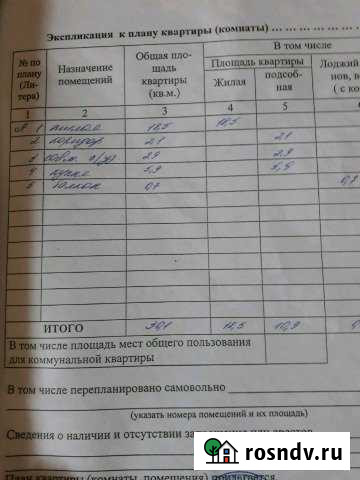 Экспликация к плану квартиры (комнаты)
В том числе
№ по плану (Литера) Назначение помещений Общая площадь квартиры (кв.м.) Площадь квартиры Лоджий
Жилая подсобная
1 2 3 4 5
1 жилая 18,5 18,5
2 коридор 2,1 2,1
3 совм. с/у 2,9 2,9
4 кухня 5,9 5,9
5 балкон 0,7 0,7
ИТОГО 18,5 10,9
В том числе площадь мест общего пользования
для коммунальной квартиры
В том числе перепланировано самовольно
(указать номера помещений и их площадь)
Сведения о наличии и отсутствии
План квартиры (комнаты, помещения) прилагается.
rosndv.ru